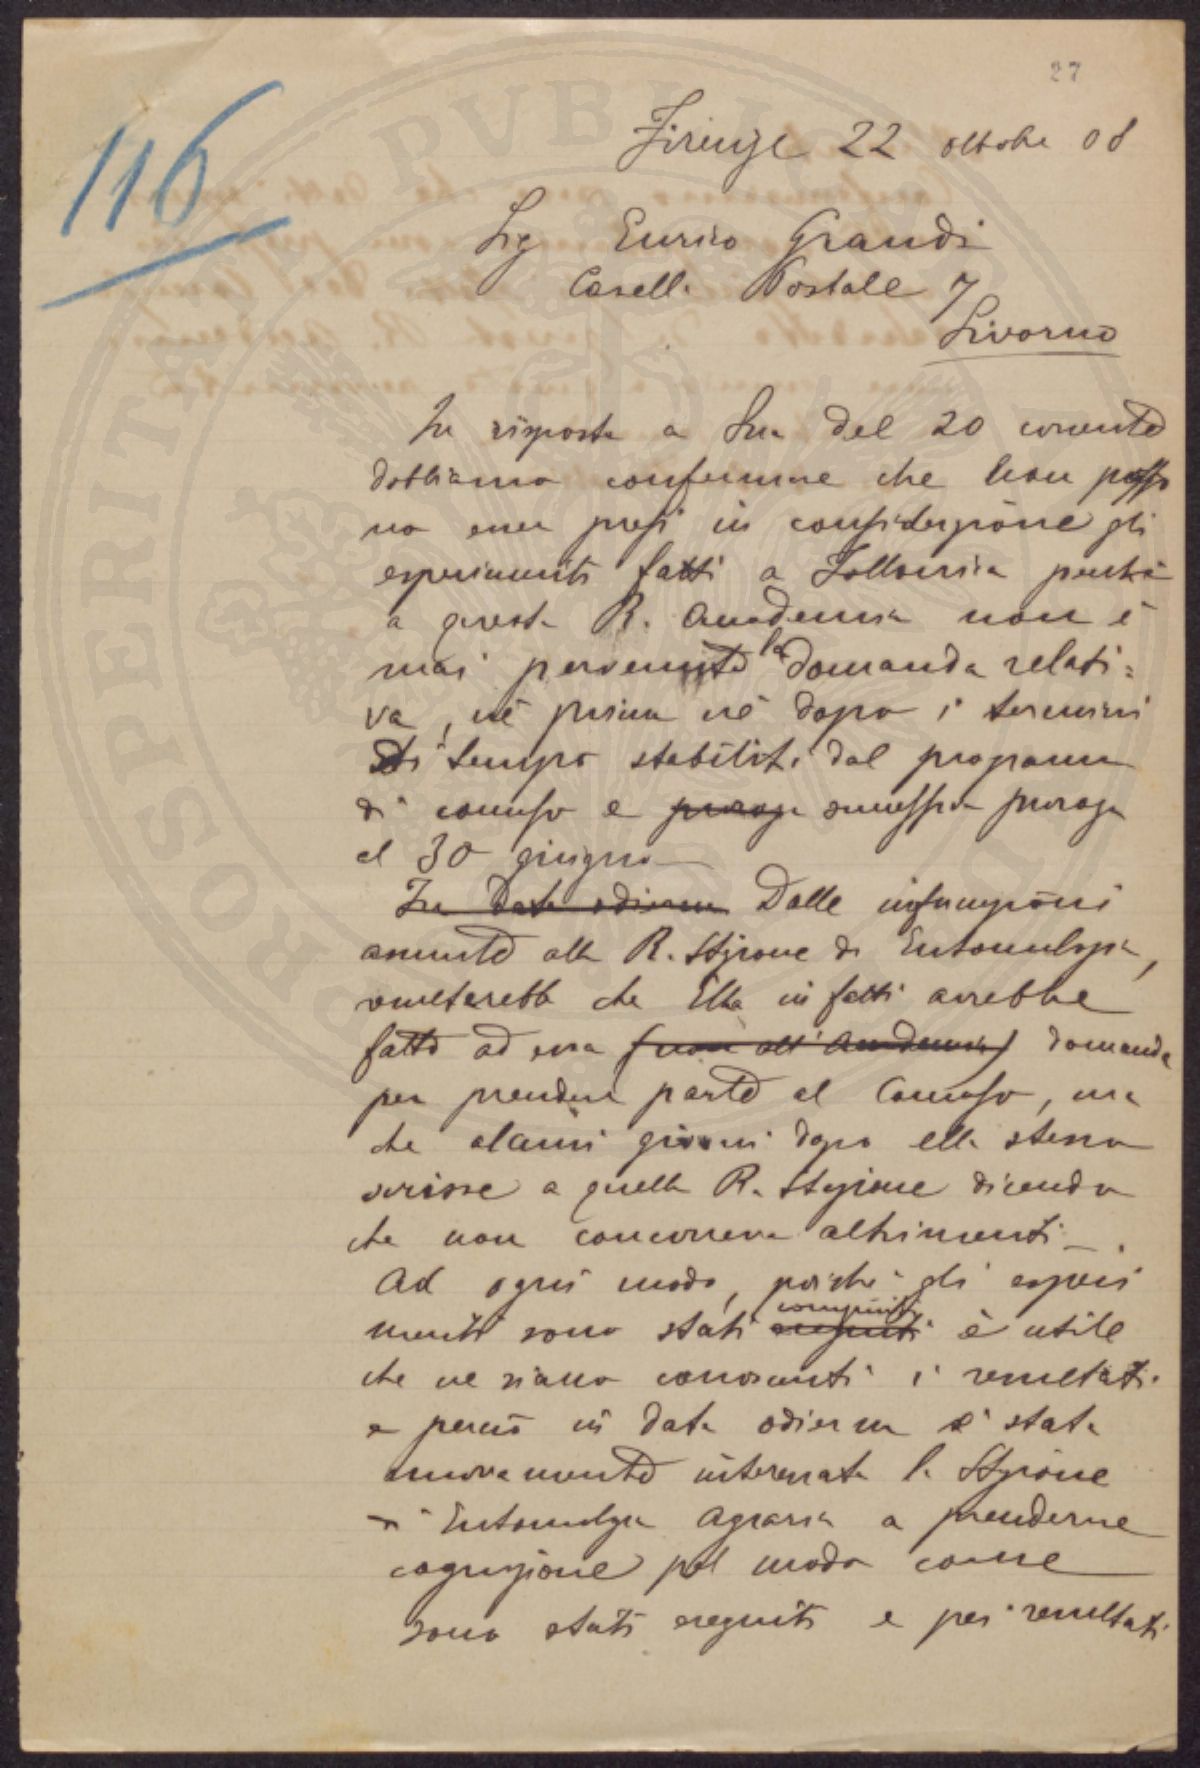 27
116
Firenze 22 ottobre 08
Sig Enrico Grandi
Casella Postale 7
Livorno
In risposta a Sua del 20 corrente
dobbiamo confermare che non posso
no esser presi in considerazione gli
esperimenti fatti a Follonica perchè
a questa R. Accademia non è
mai pervenuta la domanda relati=
va, nè prima nè dopo i termini
di tempo stabiliti dal programma
di concorso e proroga successiva proroga
al 30 giugno
In data odierna Dalle informazioni
assunte alla R. Stazione di Entomologia,
resulterebbe che Ella in fatti avrebbe
fatto ad essa (non all'Accademia) domanda
per prendere parte al Concorso, ma
che alcuni giorni dopo ella stessa
scrisse a quella R. Stazione dicendo
che non concorreva altrimenti.
Ad ogni modo, poichè gli esperi
menti sono stati eseguiti compiuti è utile
che ne siano conosciuti i resultati
e perciò in data odierna è stata
nuovamente interessata la Stazione
di Entomologia Agraria a prenderne
cognizione pel modo come
sono stati eseguiti e pei resultati
PROSPERITATI PUBLICAE